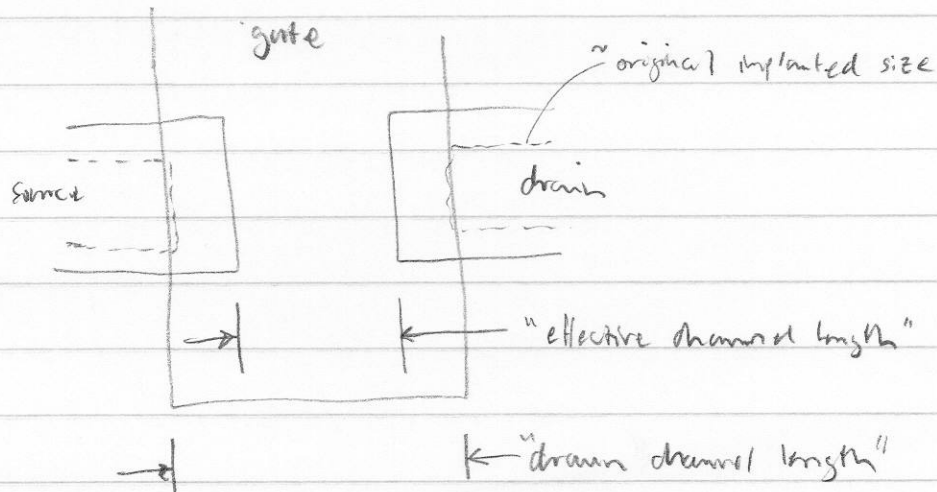 gate
~ original implanted size
source
drain
"effective channel length"
"drawn channel length"